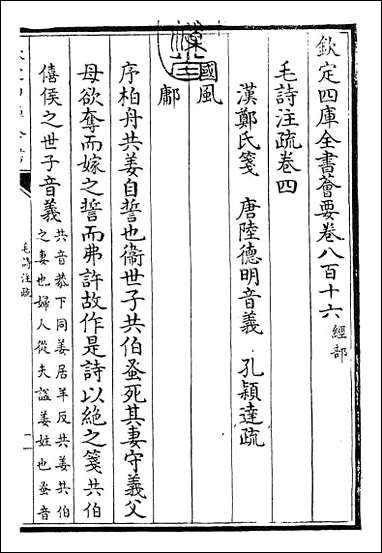 欽定四庫全書薈要卷八百十六經部
毛詩注疏卷四
漢鄭氏箋 唐陸德明音義 孔穎達疏
國風
鄘
序柏舟共姜自誓也衛世子共伯蚤死其妻守義父
母欲奪而嫁之誓而弗許故作是詩以絶之箋共伯
僖侯之世子音義共音恭下同姜居羊反共姜共伯
之妻也婦人從夫諡姜姓也蚤音
毛詩注疏